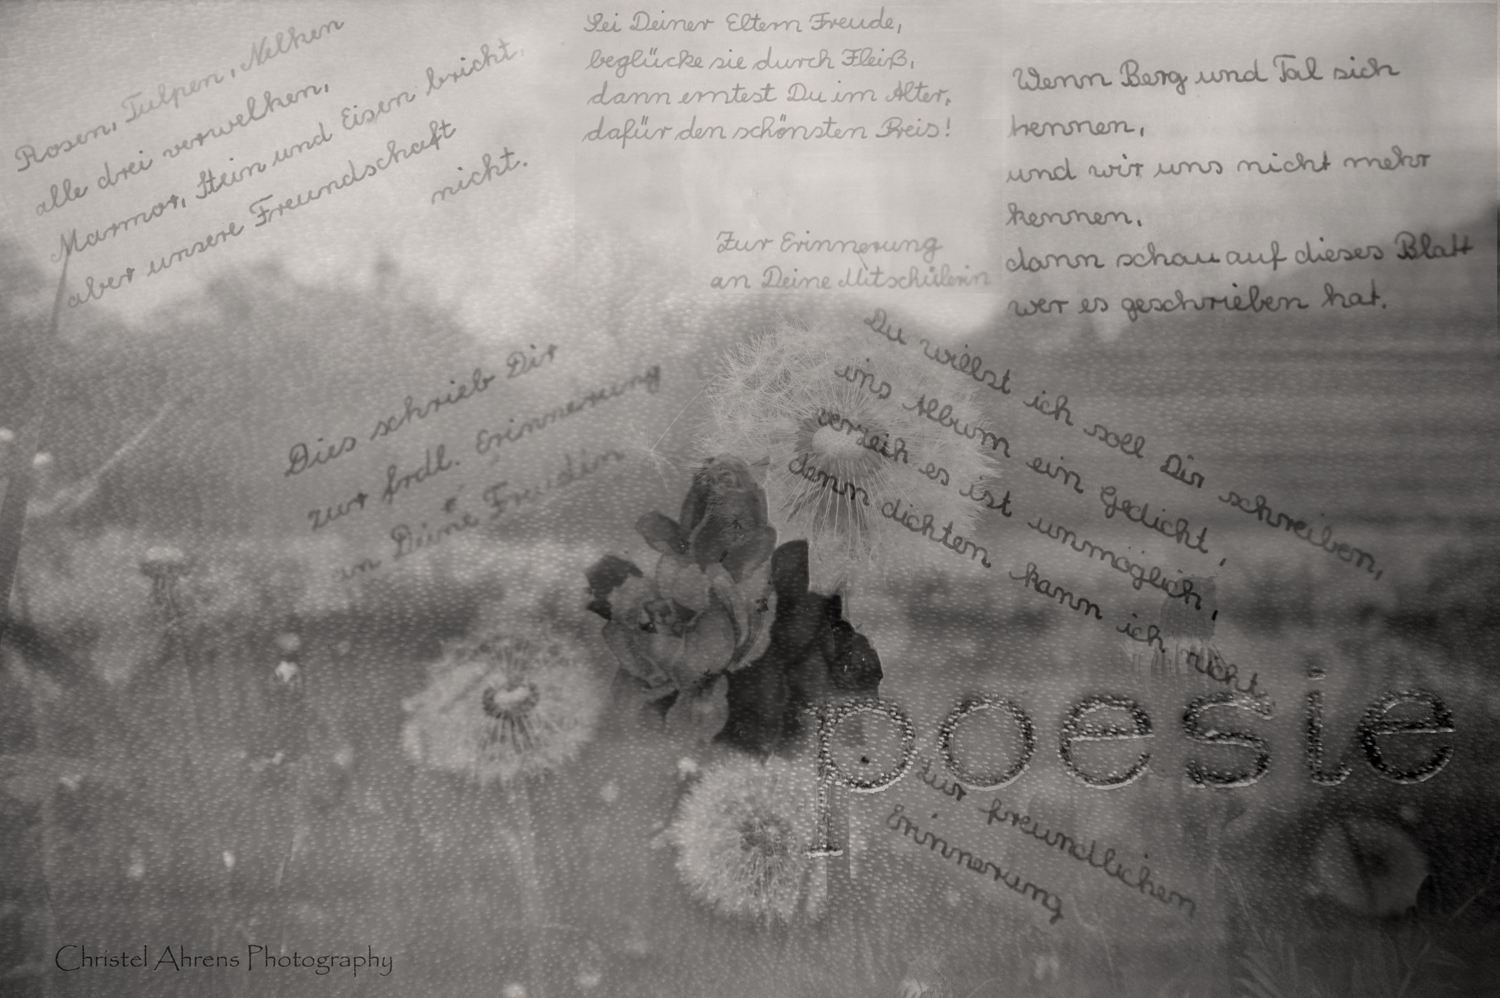 Rosen, Tulpen, Nelken
alle drei verwelken,
Marmor, Stein und Eisen bricht,
aber unsere Freundschaft
nicht.
Sei Deiner Eltern Freude,
beglücke sie durch Fleiß,
dann erntest Du im Alter,
dafür den schönsten Preis!
Zur Erinnerung
an Deine Mitschülerin
Wenn Berg und Tal sich
trennen,
und wir uns nicht mehr
kennen,
dann schau auf dieses Blatt
wer es geschrieben hat.
Dies schrieb Dir
zur frdl. Erinnerung
an Deine Freundin
Du willst ich soll Dir schreiben,
ins Album ein Gedicht,
verzeih es ist unmöglich,
denn dichten kann ich nicht.
poesie
Zur freundlichen
Erinnerung
Christel Ahrens Photography